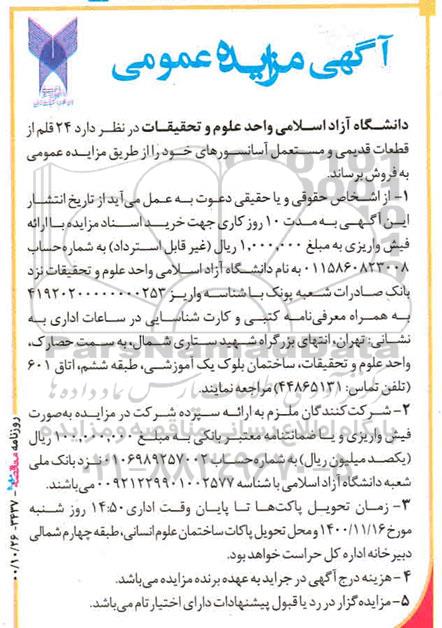 آگهی مزایده عمومی
دانشگاه آزاد اسلامی واحد علوم و تحقیقات در نظر دارد ۲۴ قلم از
قطعات قدیمی و مستعمل آسانسورهای خود را از طریق مزایده عمومی
به فروش برساند.
۱- از اشخاص حقوقی و یا حقیقی دعوت به عمل می‌آید از تاریخ انتشار
این آگهی به مدت ۱۰ روز کاری جهت خرید اسناد مزایده با ارائه
فیش واریزی به مبلغ ۱,۰۰۰,۰۰۰ ریال (غیر قابل استرداد) به شماره حساب
۰۱۱۵۸۶۰۸۲۳۰۰۸ به نام دانشگاه آزاد اسلامی واحد علوم و تحقیقات نزد
بانک صادرات شعبه پونک با شناسه واریز
به همراه معرفی‌نامه کتبی و کارت شناسایی در ساعات اداری به
نشانی: تهران، انتهای بزرگراه شهید ستاری شمال، به سمت حصارک،
واحد علوم و تحقیقات، ساختمان بلوک یک آموزشی، طبقه ششم، اتاق ۶۰۱
(تلفن تماس: ۴۴۸۶۵۱۳۱) مراجعه نمایند.
۲- شرکت‌کنندگان ملزم به ارائه سپرده شرکت در مزایده به‌صورت
فیش واریزی و یا ضمانتنامه معتبر بانکی به مبلغ ۱۰۰,۰۰۰,۰۰۰ ریال
(یکصد میلیون ریال) به شماره حساب ۰۱۰۶۹۸۹۲۵۷۰۰۲ نزد بانک ملی
شعبه دانشگاه آزاد اسلامی با شناسه ۰۰۹۲۱۲۲۹۹۰۱۰۰۲۵۷۷ می‌باشند.
۳- زمان تحویل پاکت‌ها تا پایان وقت اداری ۱۴:۵۰ روز شنبه
مورخ ۱۴۰۰/۱۱/۱۶ و محل تحویل پاکات ساختمان علوم انسانی، طبقه چهارم شمالی
دبیرخانه اداره کل حراست خواهد بود.
۴- هزینه درج آگهی در جراید به عهده برنده مزایده می‌باشد.
۵- مزایده‌گزار در رد یا قبول پیشنهادات دارای اختیار تام می‌باشد.
روزنامه
۰۰/۱۰/۲۶ - ۳۴۳۷
ParsNamadData
پایگاه اطلاع رسانی مناقصه و مزایده